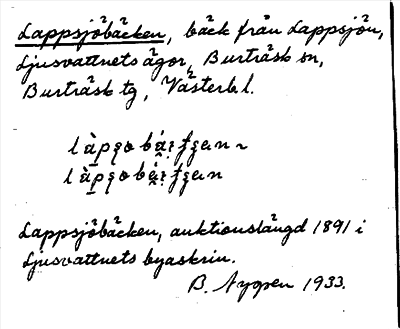 Lappsjöbäcken, bäck från Lappsjön,
Ljusvattnets ägor, Burträsk sn,
Burträsk tg, Västerb l.
Lappsjöbäcken, auktionslängd 1891 i
Ljusvattnets byaskrin.
B. Nygren 1933.